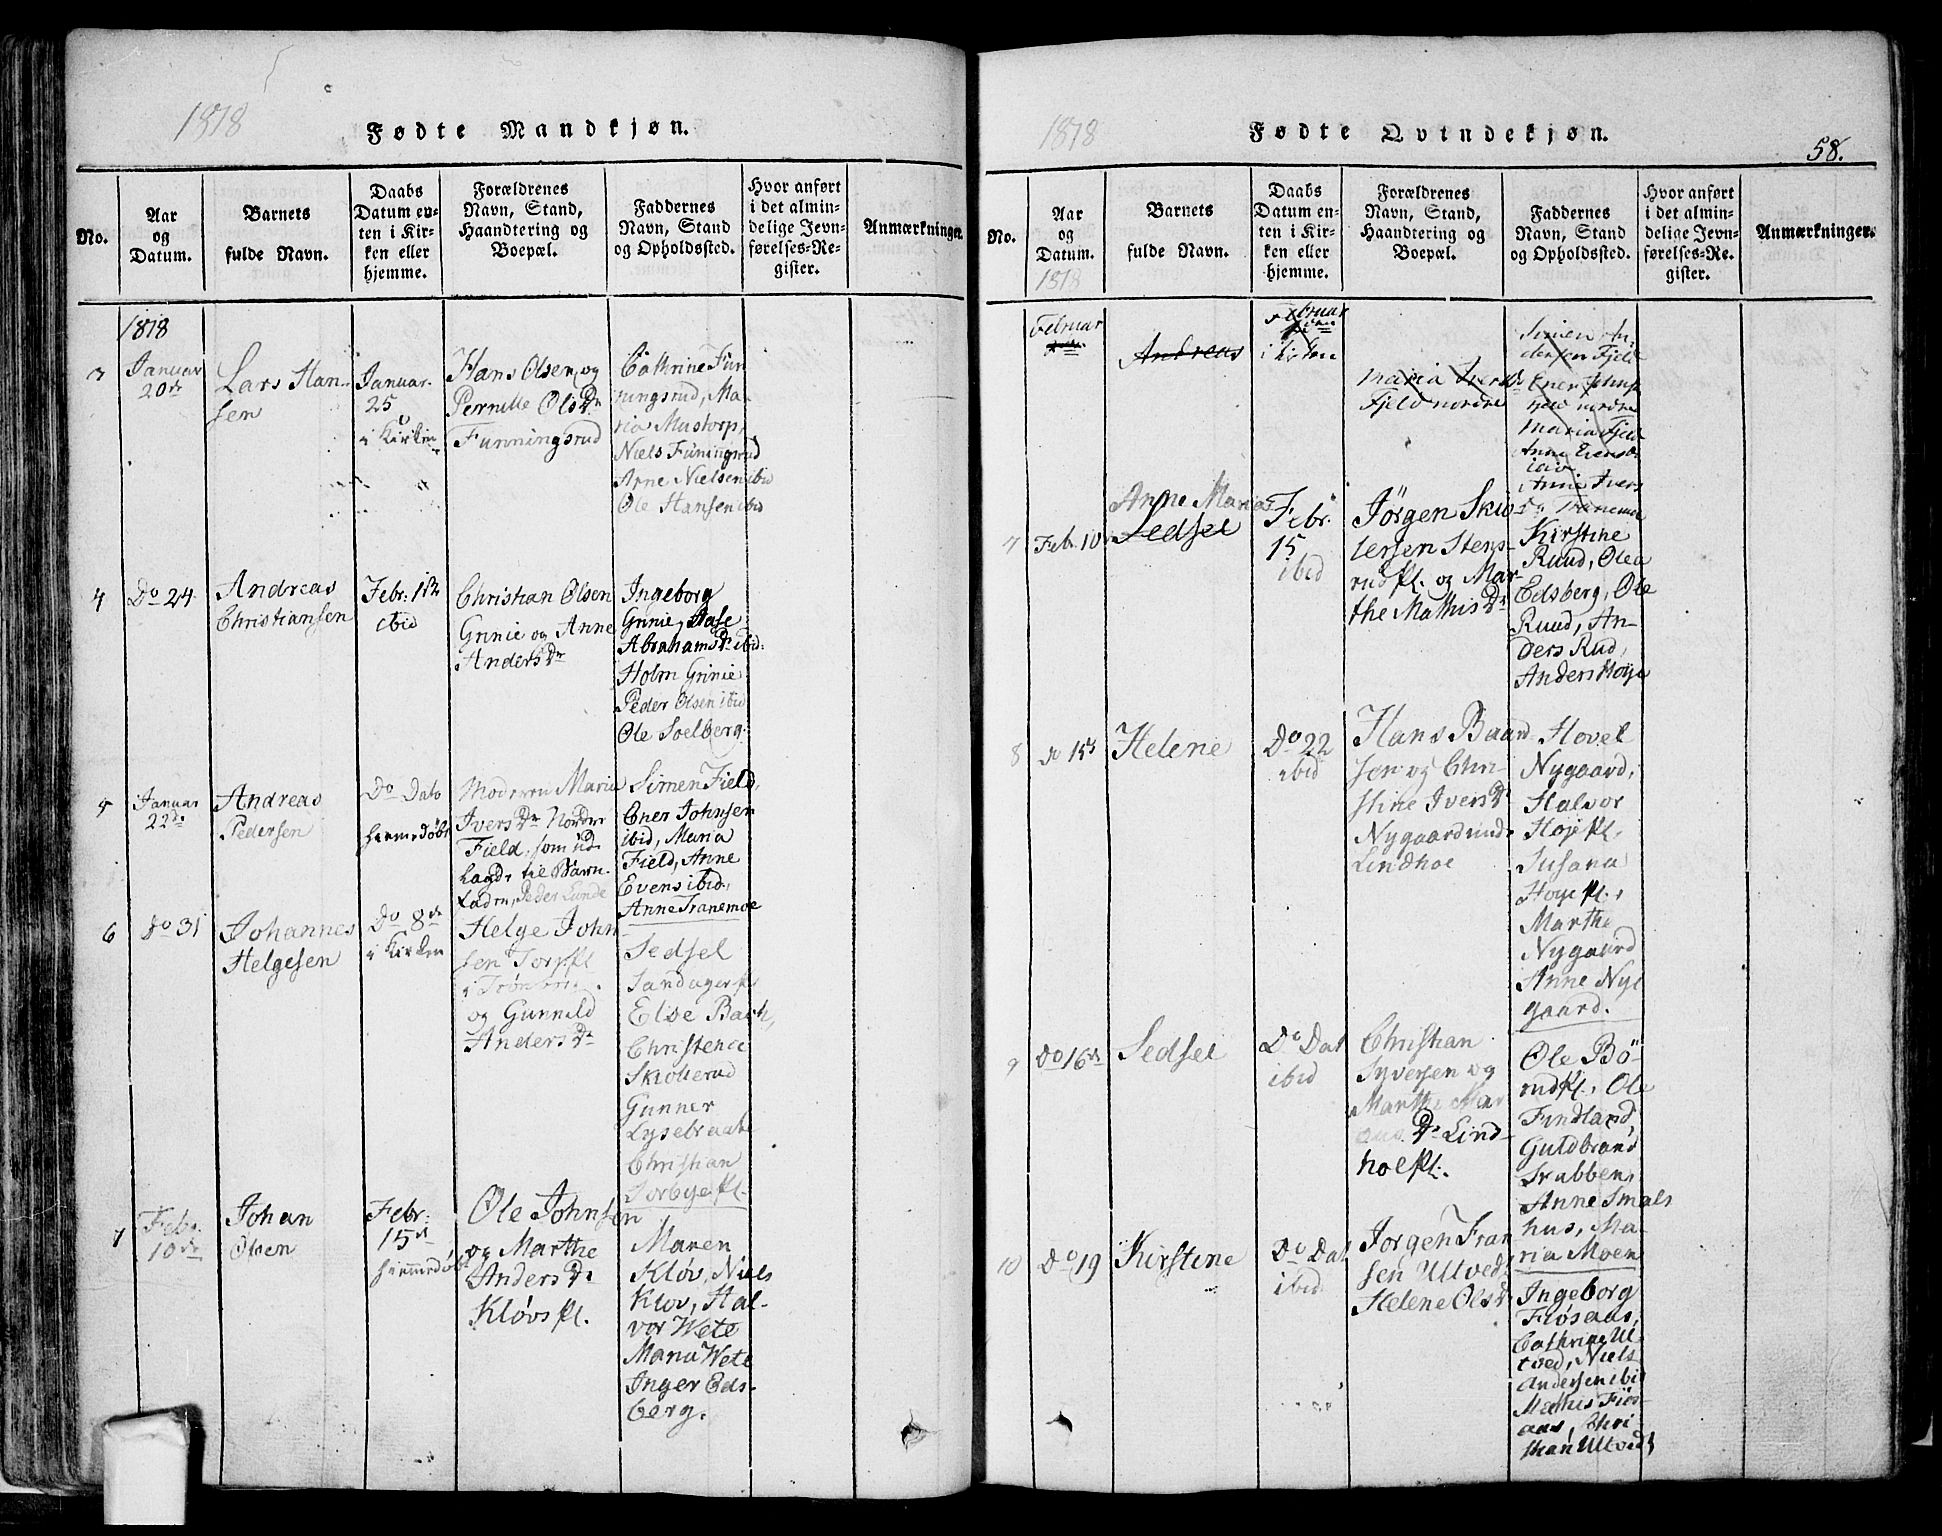 1818
Fødte Mandkjøn.
No.
Aar
og
Datum.
Barnets
fulde Navn.
Daabs
Datum en-
ten i Kir-
ken eller
hjemme.
Forældrenes
Navn, Stand,
Haandtering og
Boepæl.
Faddernes
Navn, Stand
og Opholdssted.
Hvor anført
i det almin-
delige Jevn-
førelses-Re-
gister.
Anmærkninger.
1818
3
Januar
20de
Lars Han-
sen
Januar.
25
i Kirken
Hans Olsen og
Pernille OlsDr
Funningsrud
Cathrine Fun
ningsrud, Ma-
ria Mustorp,
Niels Funingsrud
Arne Nielsen ibid
Ole Hansen ibid
4
Do 24
Andreas
Christiansen
Febr. 1ste
ibid
Christian Olsen
Grinie og Anne
AndersDr
Ingeborg
Grinie, Aase
AbrahamsDr ibid:
Holm Grinie
Peder Olsen ibid
Ole Soelberg.
5
Januar
22de
Andreas
Pedersen
Do Dato
hiemedøbt
Moderen Maria
IversDr Nordre
Field, som ud
lagde til Barn-
fader, Peder Lunde
Simen Field,
Ener Johnsen
ibid, Maria
Field, Anne
Evens ibid,
Anne Tranemoe
6
Do 31
Johannes
Helgesen
Do 8de
i Kirken
Helge John
sen Torp pl.
i
og Gunnild
AndersDr
Sedsel
Sandager pl
Else Bach,
Christence
Skiollerud
Gunner
Lysebraate
Christian
Sorbye pl.
7
Febr.
10de
Johan
Olsen
Febr:
15de
hiemmedøbt
Ole Johnsen
og Marthe
AndersDr
Kløvs pl.
Maren
Kløv, Niels
Klov, Hal-
vor Wete
Maria Wete
Inger Eds-
berg.
1818
Fødte Qvindekjøn.
58.
No.
Aar
og
Datum.
1818
Barnets
fulde Navn.
Daabs
Datum en-
ten i Kir-
ken eller
hjemme.
Forældrenes
Navn, Stand,
Haandtering og
Boepæl.
Faddernes
Navn, Stand
og Opholdssted.
Hvor anført
i det almin-
delige Jevn-
førelses-Re-
gister.
Anmærkninger.
Februar
Andreas
Februar
i kirken
Maria Ivers
Fjeld nordre
Simen An
dersen Fjeld
Ener Johns
Fjeld nordre
Maria Fjeld
Anne Evens
ibid
Anne Ivers
Tranemoe
7
Febr. 10
Anne Maria
Sedsel
Febr.
15
ibid
Jörgen Skio
lersen Stens-
rud pl. og Mar-
the MathisDr
Kirstine
Ruud, Olea
Edsberg, Ole
Ruud, An-
ders Rud,
Anders Hoye
8
Do 15de
Helene
Do 22
ibid
Hans Baard
sen og Chri-
stine IversDr
Nygaard und.
Lindhoe
Hovel
Nygaard,
Halvor
Hoje pl.
Susana
Hoye pl.,
Marthe
Nygaard
Anne Nye
gaard.
9
Do 16de
Sedsel
Do Dat
ibid
Christian
Syversen og
Marthe Mar
Dr Lind-
hoe pl.
Ole Bö-
rud pl., Ole
Findland,
Guldbrand
Srubben,
Anne Smals
hus, Ma-
ria Moen
10
Do 19
Kirstine
Do Dat
ibid
Jorgen Fran
sen Ultved,
Helene OlsDr
Ingeborg
Fiösaas,
Cathrine Ul-
tved, Niels
Andersen ibid
Mathis Fiös
aas, Chri-
stian Ultvedt